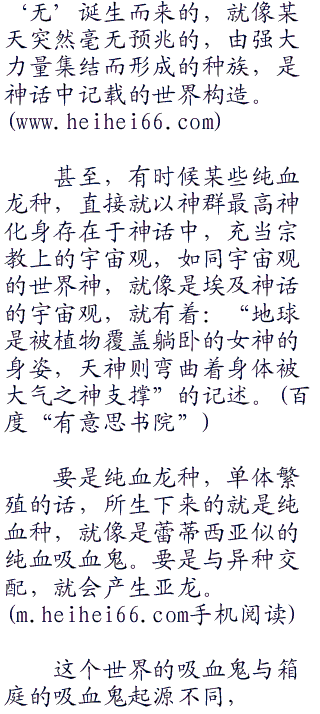 ‘无’诞生而来的，就像某
天突然毫无预兆的，由强大
力量集结而形成的种族，是
神话中记载的世界构造。
(www.heihei66.com)
甚至，有时候某些纯血
龙种，直接就以神群最高神
化身存在于神话中，充当宗
教上的宇宙观，如同宇宙观
的世界神，就像是埃及神话
的宇宙观，就有着：“地球
是被植物覆盖躺卧的女神的
身姿，天神则弯曲着身体被
大气之神支撑”的记述。(百
度“有意思书院”)
要是纯血龙种，单体繁
殖的话，所生下来的就是纯
血种，就像是蕾蒂西亚似的
纯血吸血鬼。要是与异种交
配，就会产生亚龙。
(m.heihei66.com手机阅读)
这个世界的吸血鬼与箱
庭的吸血鬼起源不同，